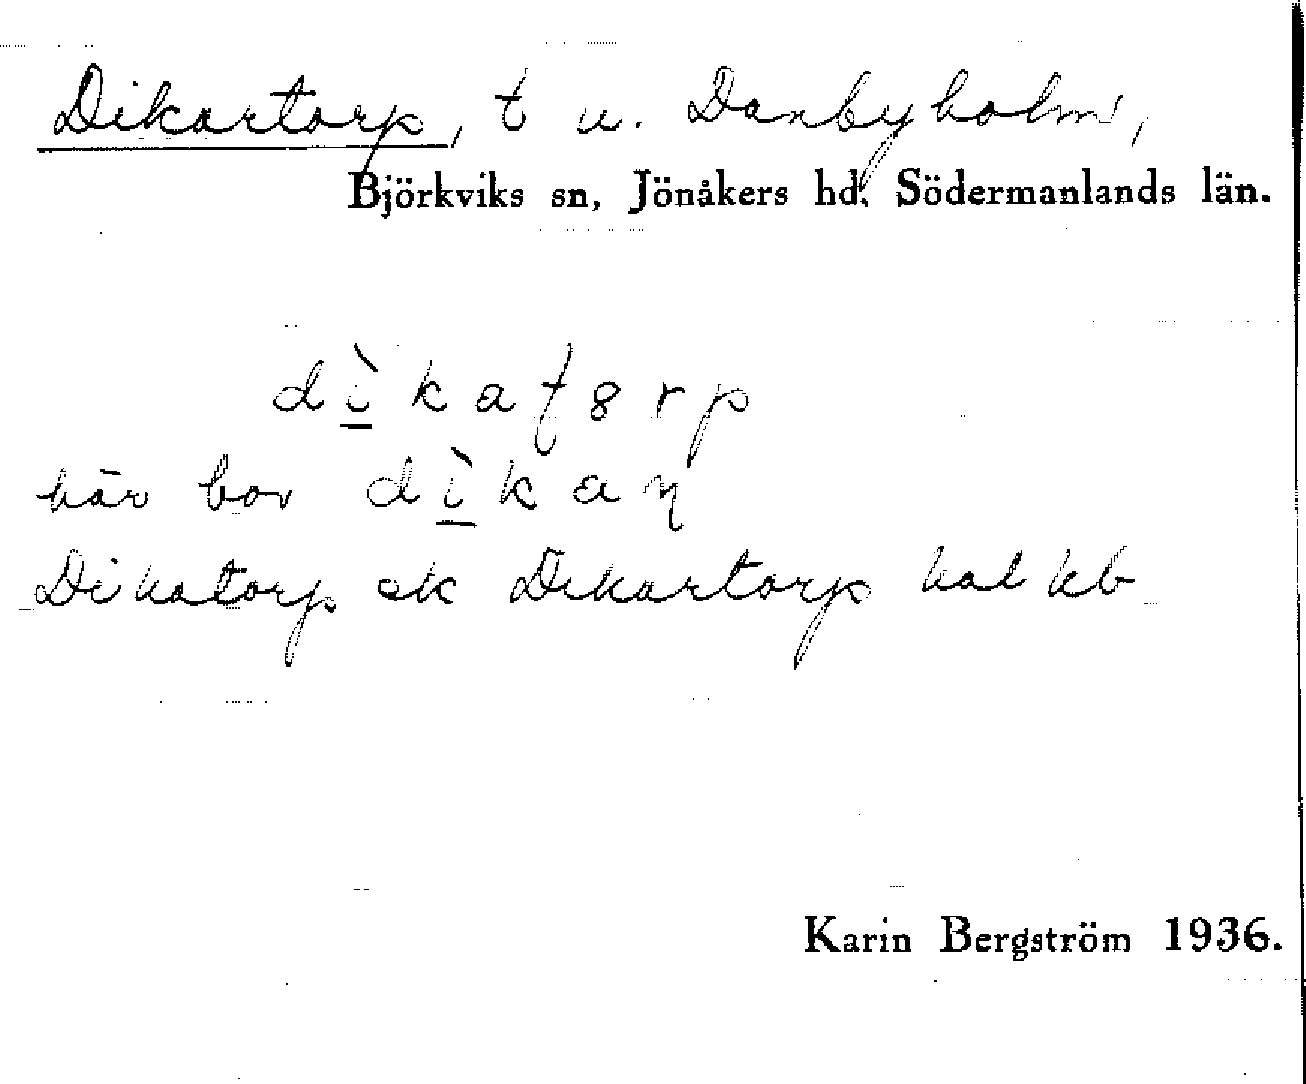 Dikartorp, t u. Danbyholm,
Björkviks sn, Jönåkers hd, Södermanlands län.
dìkatȣrp
här bor dìkaɳ
Dikatorp ek Dikartorp hal kb
Karin Bergström 1936.